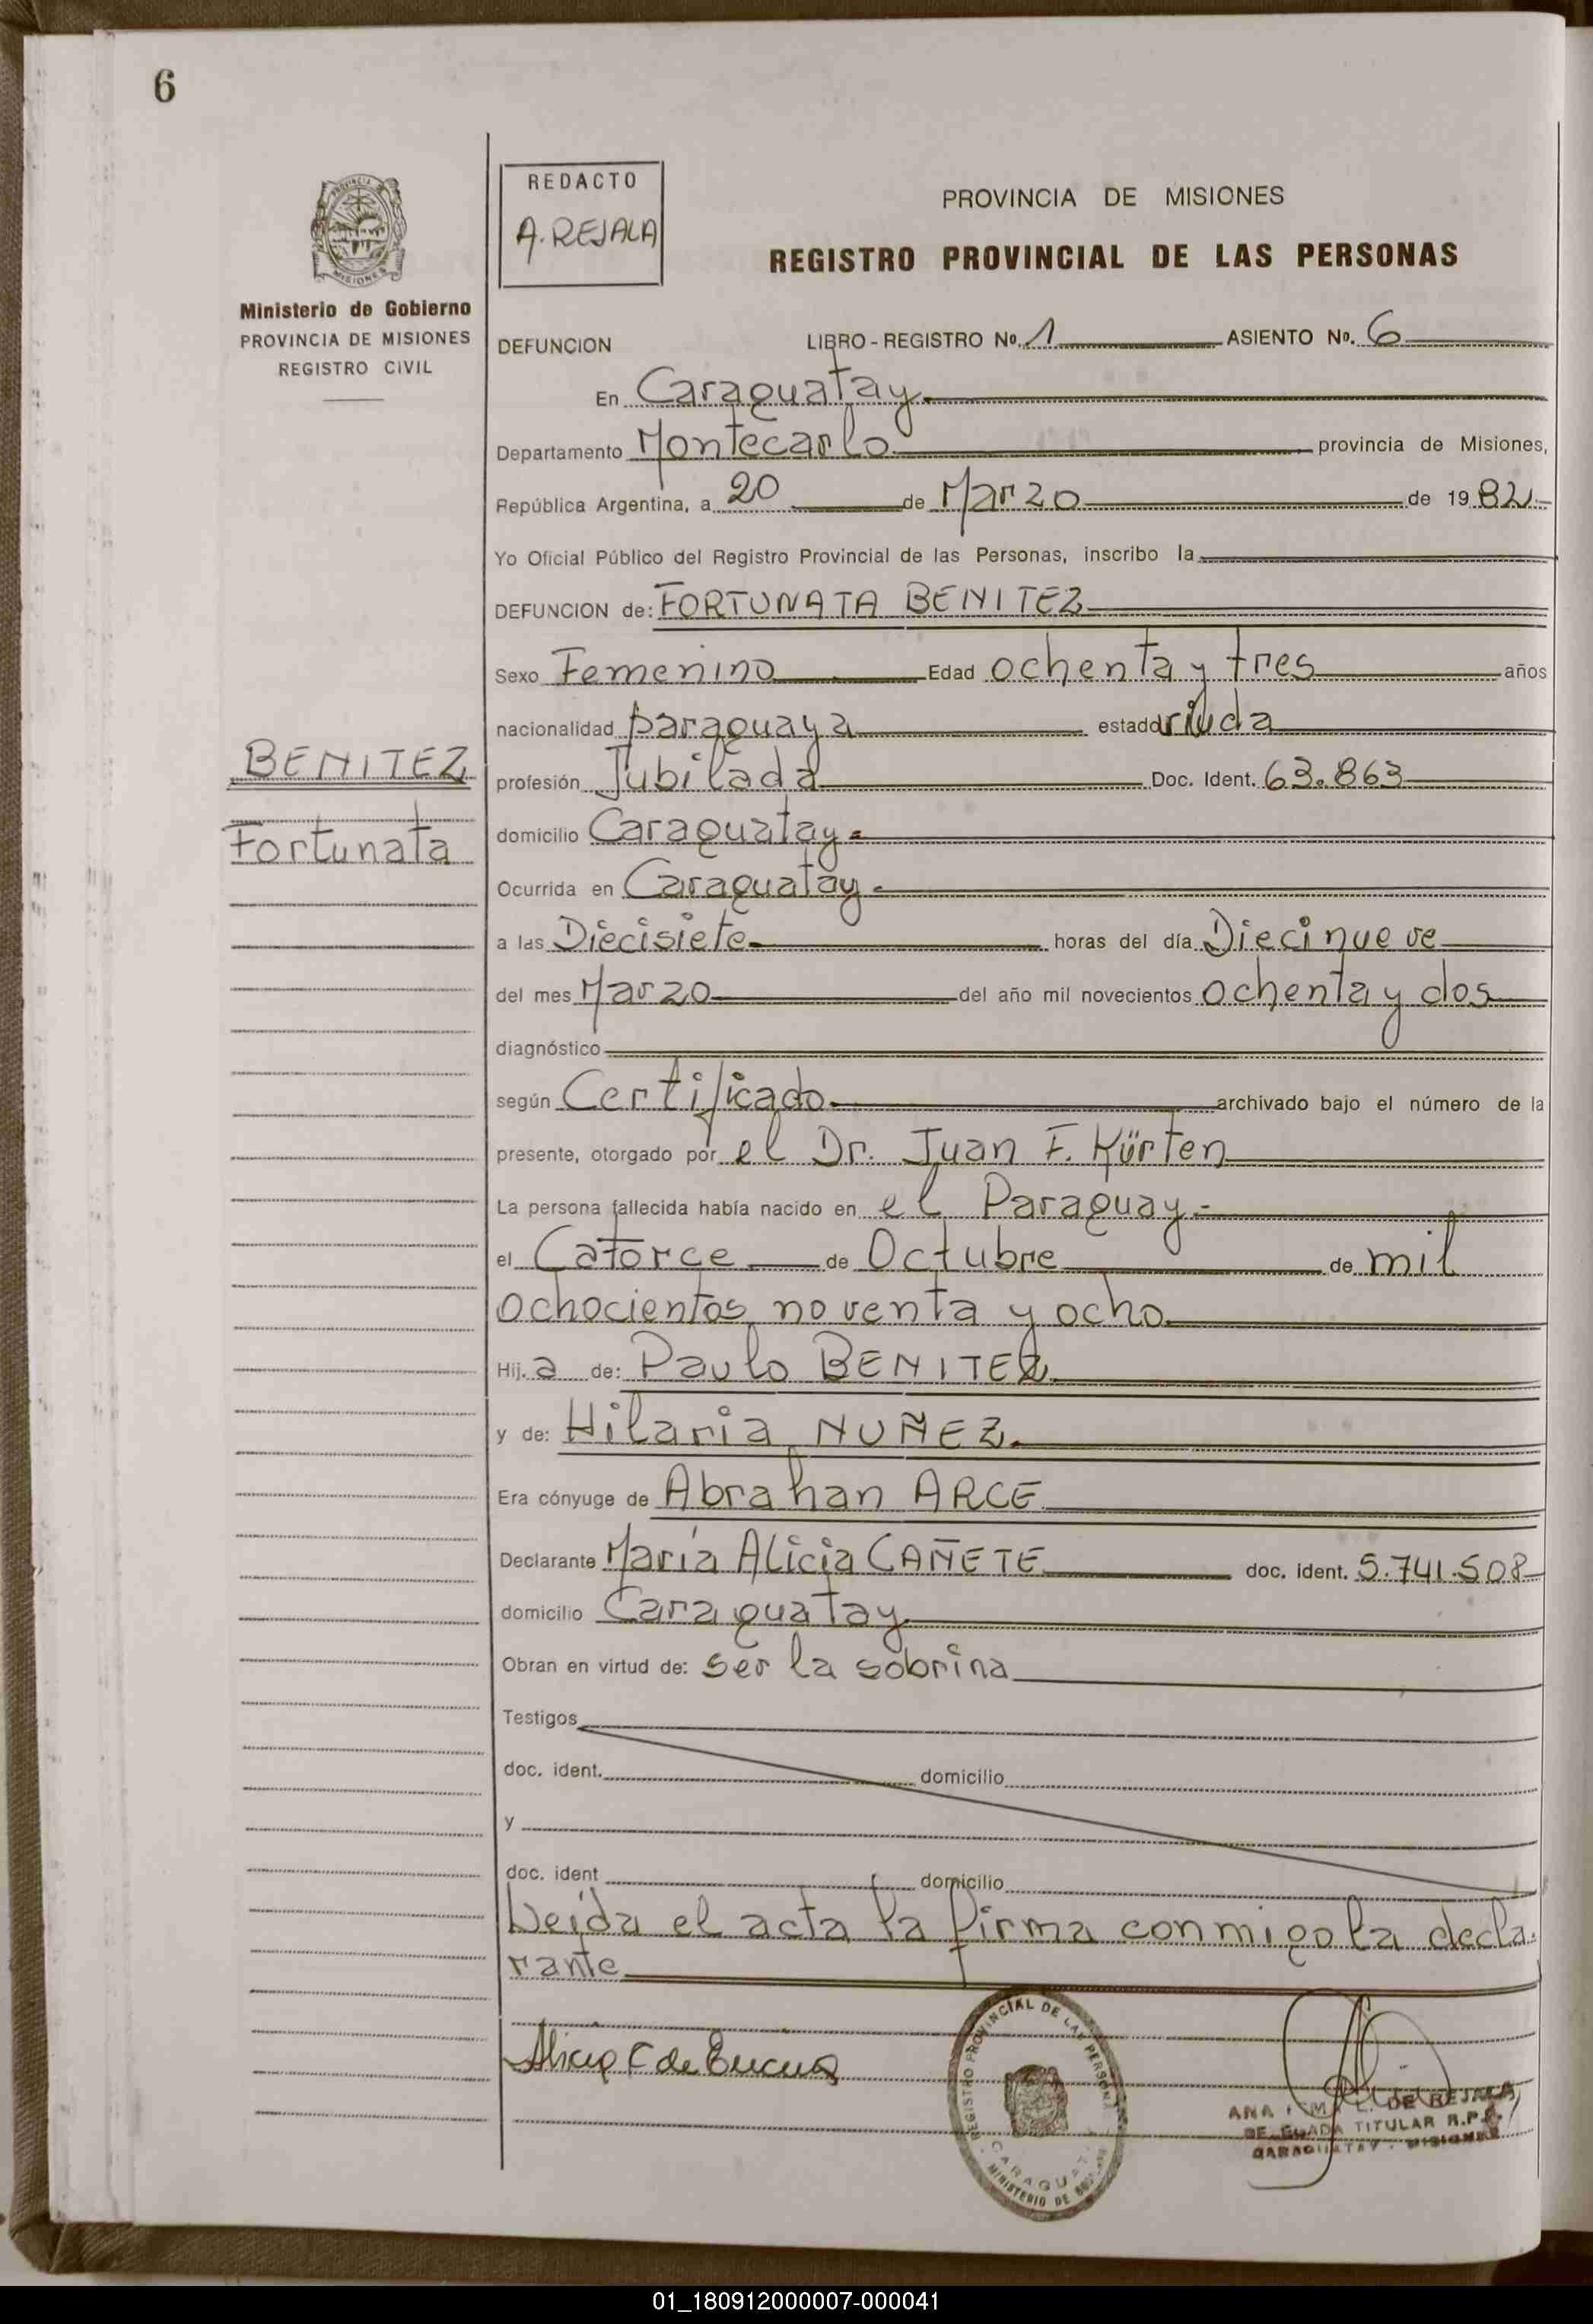 6
REDACTO
A. REJALA
PROVINCIA DE MISIONES
REGISTRO PROVINCIAL DE LAS PERSONAS
PROVINCIA
MISIONES
Ministerio de Gobierno
PROVINCIA DE MISIONES
REGISTRO CIVIL
DEFUNCION LIBRO - REGISTRO Nº. 1 ASIENTO Nº. 6
En Caraguatay
Departamento Montecarlo provincia de Misiones,
República Argentina, a 20 de Marzo de 1982
Yo Oficial Público del Registro Provincial de las Personas, inscribo la
DEFUNCION de: FORTUNATA BENITEZ
Sexo Femenino Edad ochenta y tres años
nacionalidad paraguaya estado viuda
BENITEZ
Fortunata
profesión Jubilada Doc. Ident. 63.863
domicilio Caraguatay
Ocurrida en Caraguatay
a las Diecisiete horas del día Diecinueve
del mes Marzo del año mil novecientos ochenta y dos
diagnóstico
según Certificado archivado bajo el número de la
presente, otorgado por el Dr. Juan F. Kürten
La persona fallecida había nacido en el Paraguay
el Catorce de Octubre de mil
ochocientos noventa y ocho
Hij. a de: Paulo BENITEZ
y de: Hilaria NUÑEZ
Era cónyuge de Abrahan ARCE
Declarante María Alicia CAÑETE doc. ident. 5.741.508
domicilio Caraguatay
Obran en virtud de: ser la sobrina
Testigos
doc. ident. domicilio
y
doc. ident domicilio
Leída el acta la firma conmigo la decla-
rante
Alicia C de
REGISTRO PROVINCIAL DE LAS PERSONAS
CARAGUATAY
MINISTERIO DE
ANA DE REJALA
TITULAR R.P.
CARAGUATAY - MISIONES
01_180912000007-000041